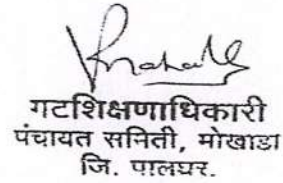 गटशिक्षणाधिकारी
पंचायत समिती, मोखाडा
जि. पालघर.